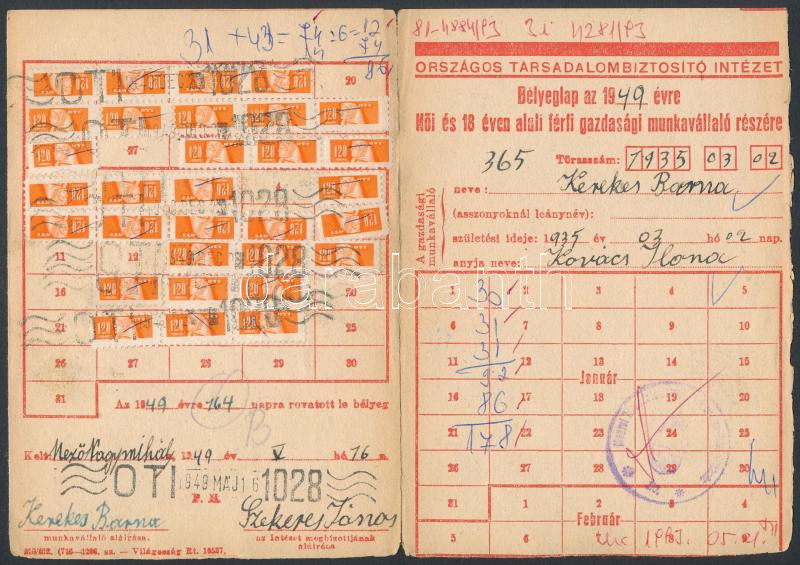 31 + 43 = 74 : 6 = 12
74
86
20
OTI 1028
120
27
11
12
16
21
25
26
27
28
29
30
31
Az 1949 évre 164 napra rovatott le bélyeg
Kelt: Mezőnagymihály 1949 év V hó 16 n.
OTI 1949 MÁJ 16 1028
P. H.
Kerekes Barna
munkavállaló aláírása.
Szekeres János
az intézet megbízottjának
aláírása
Világosság Rt.
ORSZÁGOS TÁRSADALOMBIZTOSÍTÓ INTÉZET
Bélyeglap az 1949 évre
Női és 18 éven aluli férfi gazdasági munkavállaló részére
365 Törzsszám: 1935 03 02
A gazdasági munkavállaló
neve: Kerekes Barna
(asszonyoknál leánynév):
születési ideje: 1935 év 03 hó 02 nap.
anyja neve: Kovács Ilona
1 2 3 4 5
6 7 8 9 10
11 12 13 14 15
Január
16 17 18 19 20
21 22 23 24 25
26 27 28 29 30
31 1 2 3
Február
5 6 7 8
30
31
31
92
86
178
darabanth